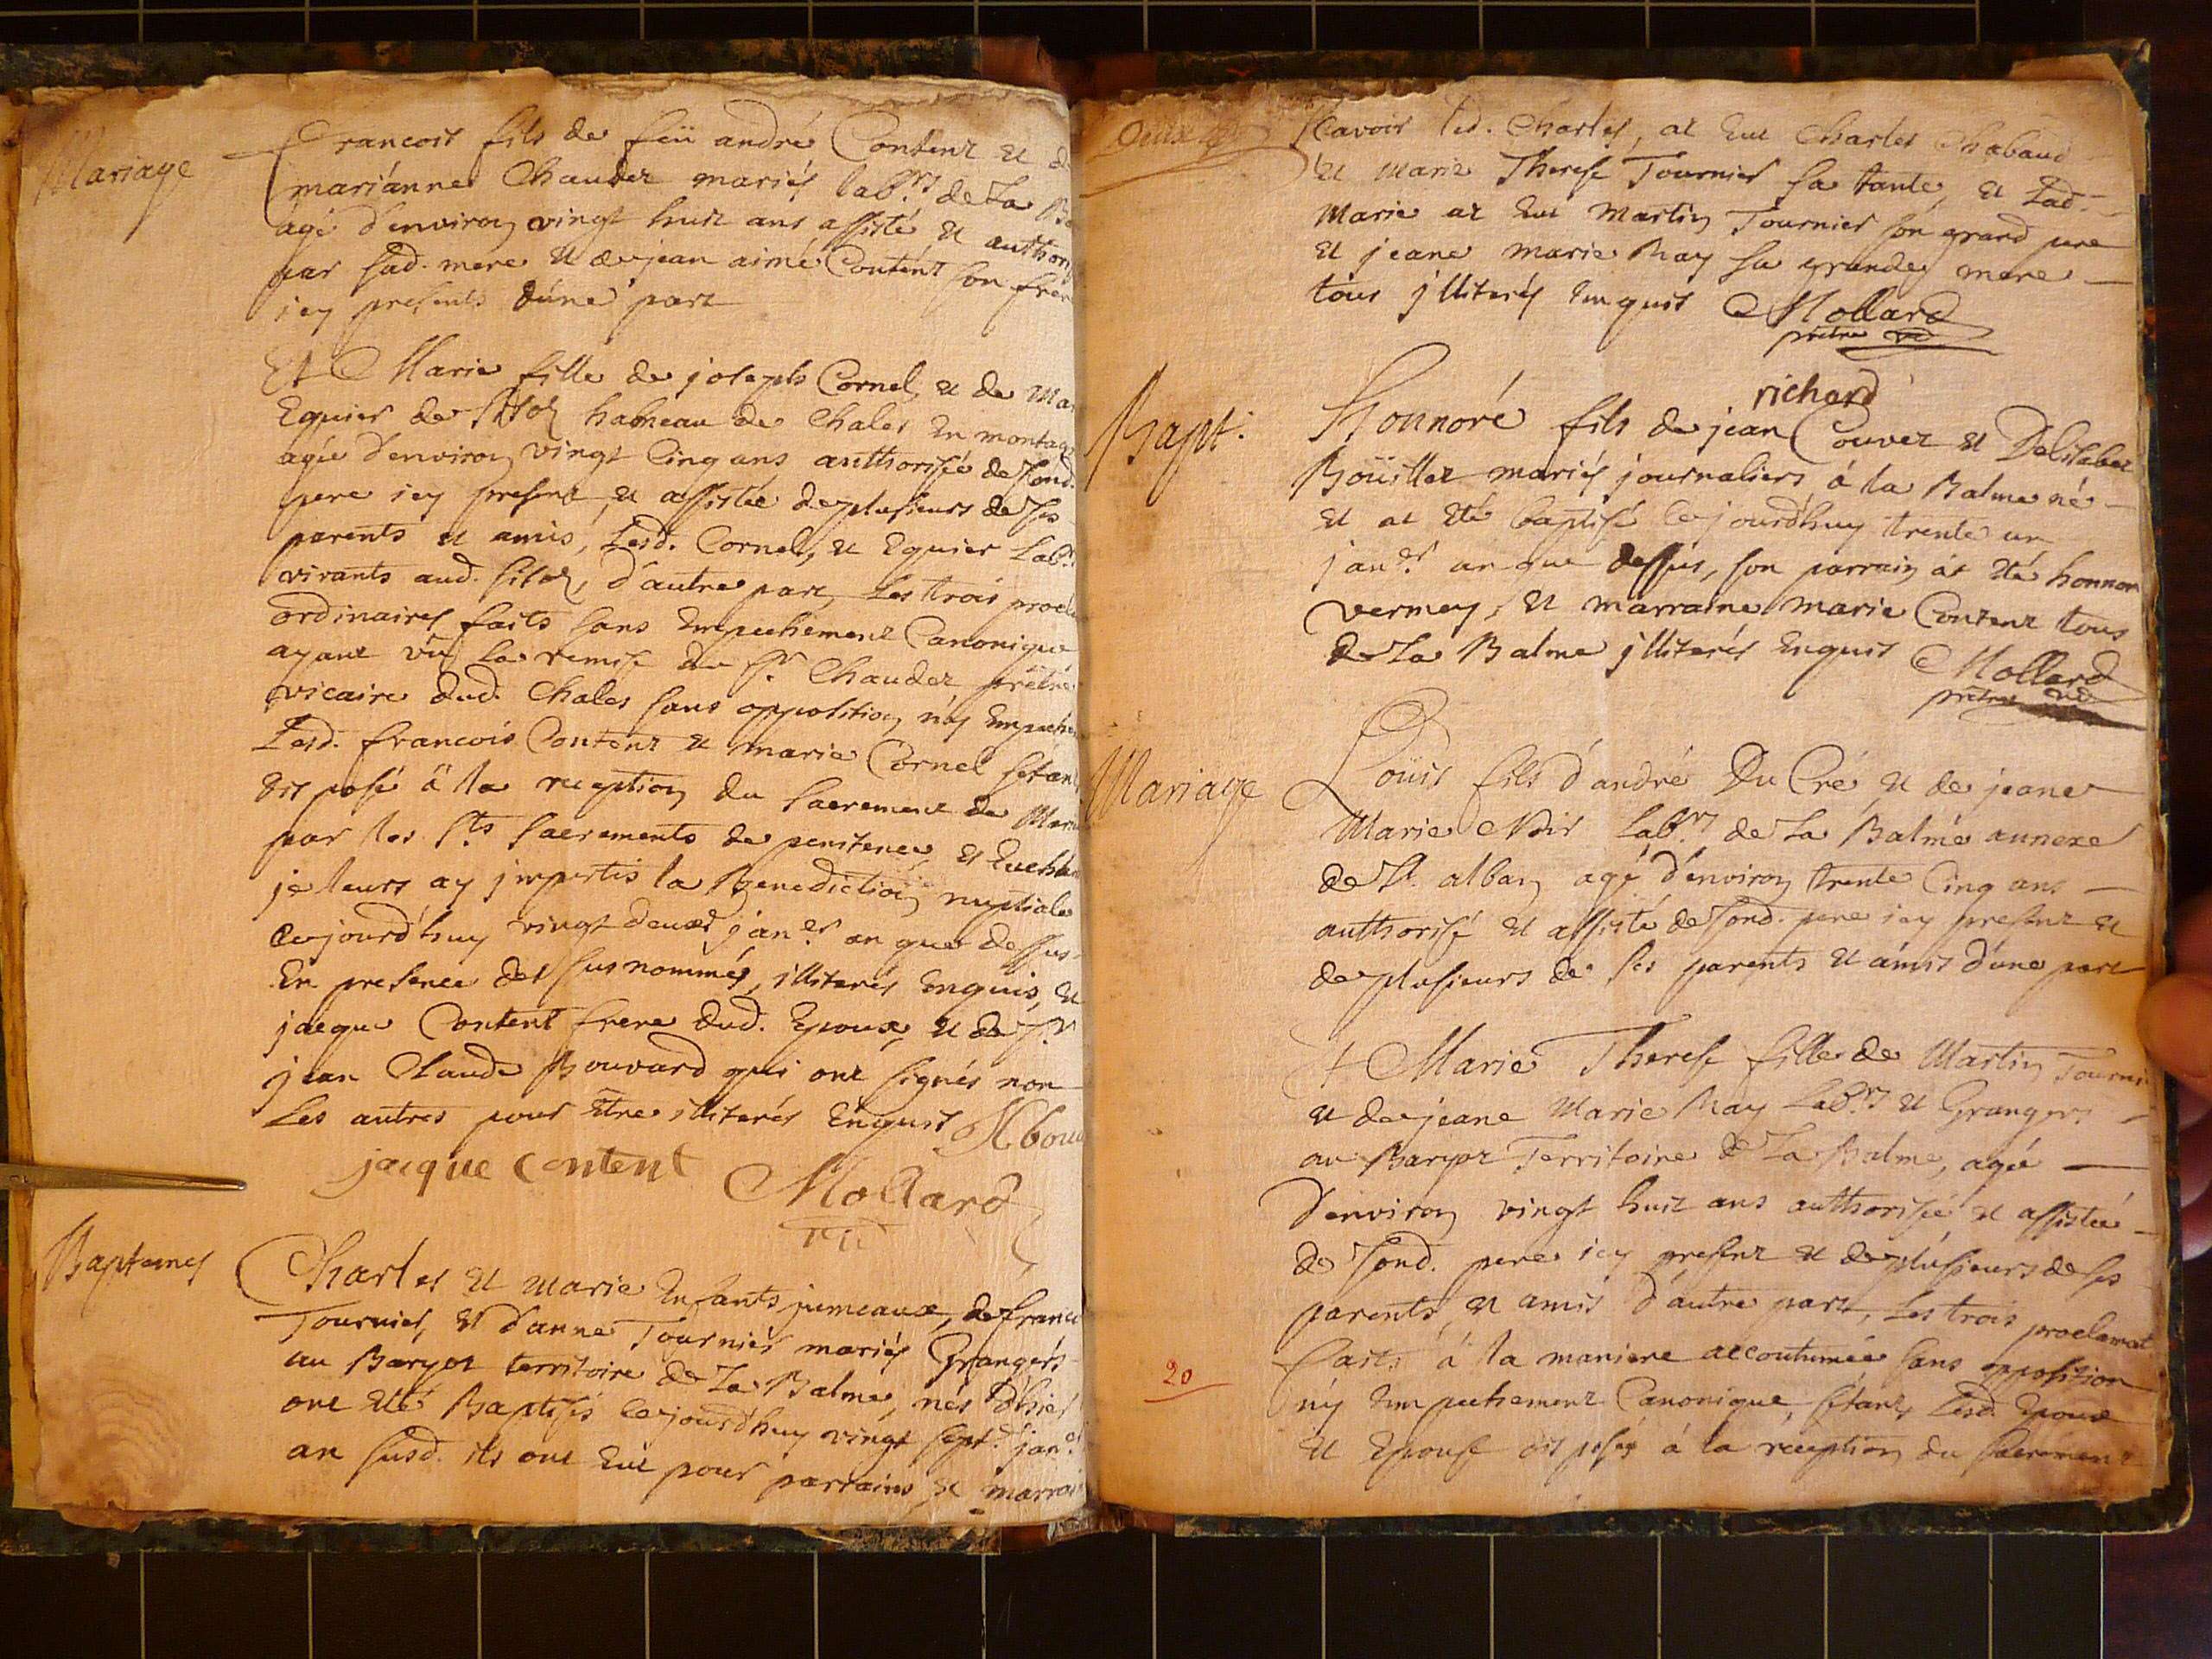 Mariage
Francois fils de feü andré Content et de
mariánne Chaudet mariés lab.rs de La Ba
agé d'environ vingt huit ans assisté et authori
par sad. mere et de jean aimé Content son frer
icy presents dúne part
Et Marie fille de joseph Cornel, et de Mar
Equier de hameau de Chales en montag
agée d'environ vingt Cinq ans authorisée de sond.
pere icy present, et assistée de plusieurs de ses
parents et amis, Lesd. Cornel, et Equier Lab.rs
vivants aud. d'autre part, Les trois procla
ordinaires faits sans empechement Canonique
ayant vû la remise du S.r Chaudet prêtre
vicaire dud. Chales sans opposition, ny empeche
Lesd. francois Content et marie Cornel s'etant
disposé à la reception du sacrement de Maria
par les S.ts sacrements de penitence, et Euchar
je leurs ay jmpartis la Benediction nuptiale
Cejourd'huy vingt deux jan.er an que dessus
En presence des susnommés, illiterés enquis, et
jacque Content frere dud. Epoux, et de S.r
jean Claude Bouvard qui ont signés non
Les autres pour être illiterés enquis
jacque content
Mollard
Baptemes
Charles et Marie Enfants jumeaux, de franco
Tournier, et d'anne Tournier mariés Grangers
au Baryot territoire de La Balme, nés d'hier
ont été Baptisés Cejourd'huy vingt sept jan.er
an susd. ils ont eut pour parrains, et marrai
Scavoir led. Charles, at eut Charles Chabaud
et Marie Therese Tournier sa tante, et Lad.
Marie at eut Martin Tournier son grand pere
et jeane marie Ray sa grande mere
tous jlliterés enquis Mollard
prêtre
Bapt.
richard
Honnoré fils de jean Couvet et Delisabet
Boüillet mariés journaliers á la Balme né
et at été baptisé Cejourd'huy trente un
jan.er an que dessus, son parrain at été honnor
vermey, et marraine marie Content tous
de La Balme jlliterés enquis Mollard
prêtre
Mariage
Loüis fils d'andré Du Cré et de jeane
Marie Noir Lab.rs de La Balme annexe
de St. alban agé d'environ trente Cinq ans
authorisé et assisté de sond. pere icy present et
de plusieurs de ses parents et amis d'une part
Et Marie Therese fille de Martin Tourni
et de jeane Marie Ray Lab.rs et Grangers
au Baryot Territoire de La Balme, agée
D'environ vingt huit ans authorisée et assistée
de sond. pere icy present et de plusieurs de ses
parents, et amis d'autre part, Les trois proclamat
faits á la maniere accoutumée sans opposition
ny empechement Canonique, s'etant Lesd. Epoux
et Epouse disposés á la reception du sacrement
20